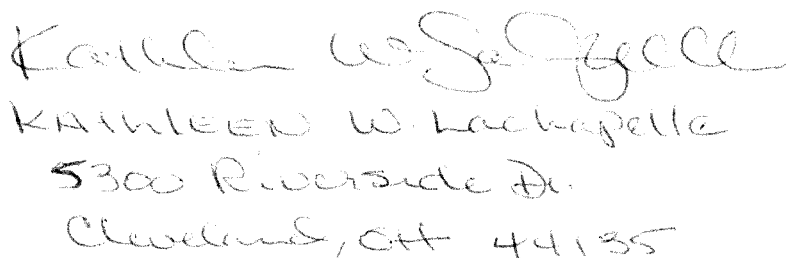 Kathleen W. LaChapelle
KAthlEEN W. Lachapelle
5300 Riverside Dr.
Cleveland, OH 44135